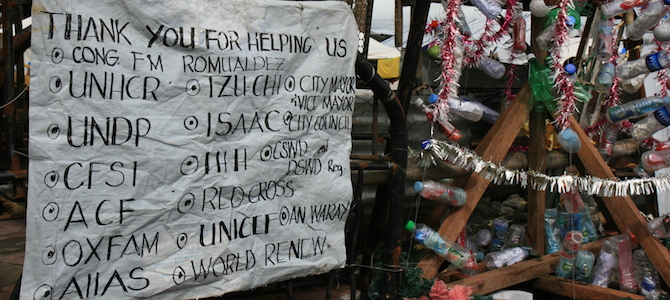 THANK YOU FOR HELPING US
CONG. FM ROMUALDEZ
UNHCR
UNDP
CFSI
ACF
OXFAM
AIIAS
TZU CHI
ISAAC
RED CROSS
UNICEF
WORLD RENEW
CITY MAYOR
VICE MAYOR
CITY COUNCIL
CSWD and
DSWD Reg.
AN WARAY